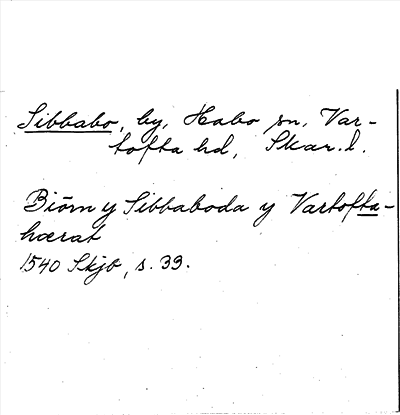 Sibbabo, by, Habo sn, Var-
tofta hd, Skar. l.
Biörn y Sibbaboda y Vartofta-
hærat
1540 Skjb, s. 39.